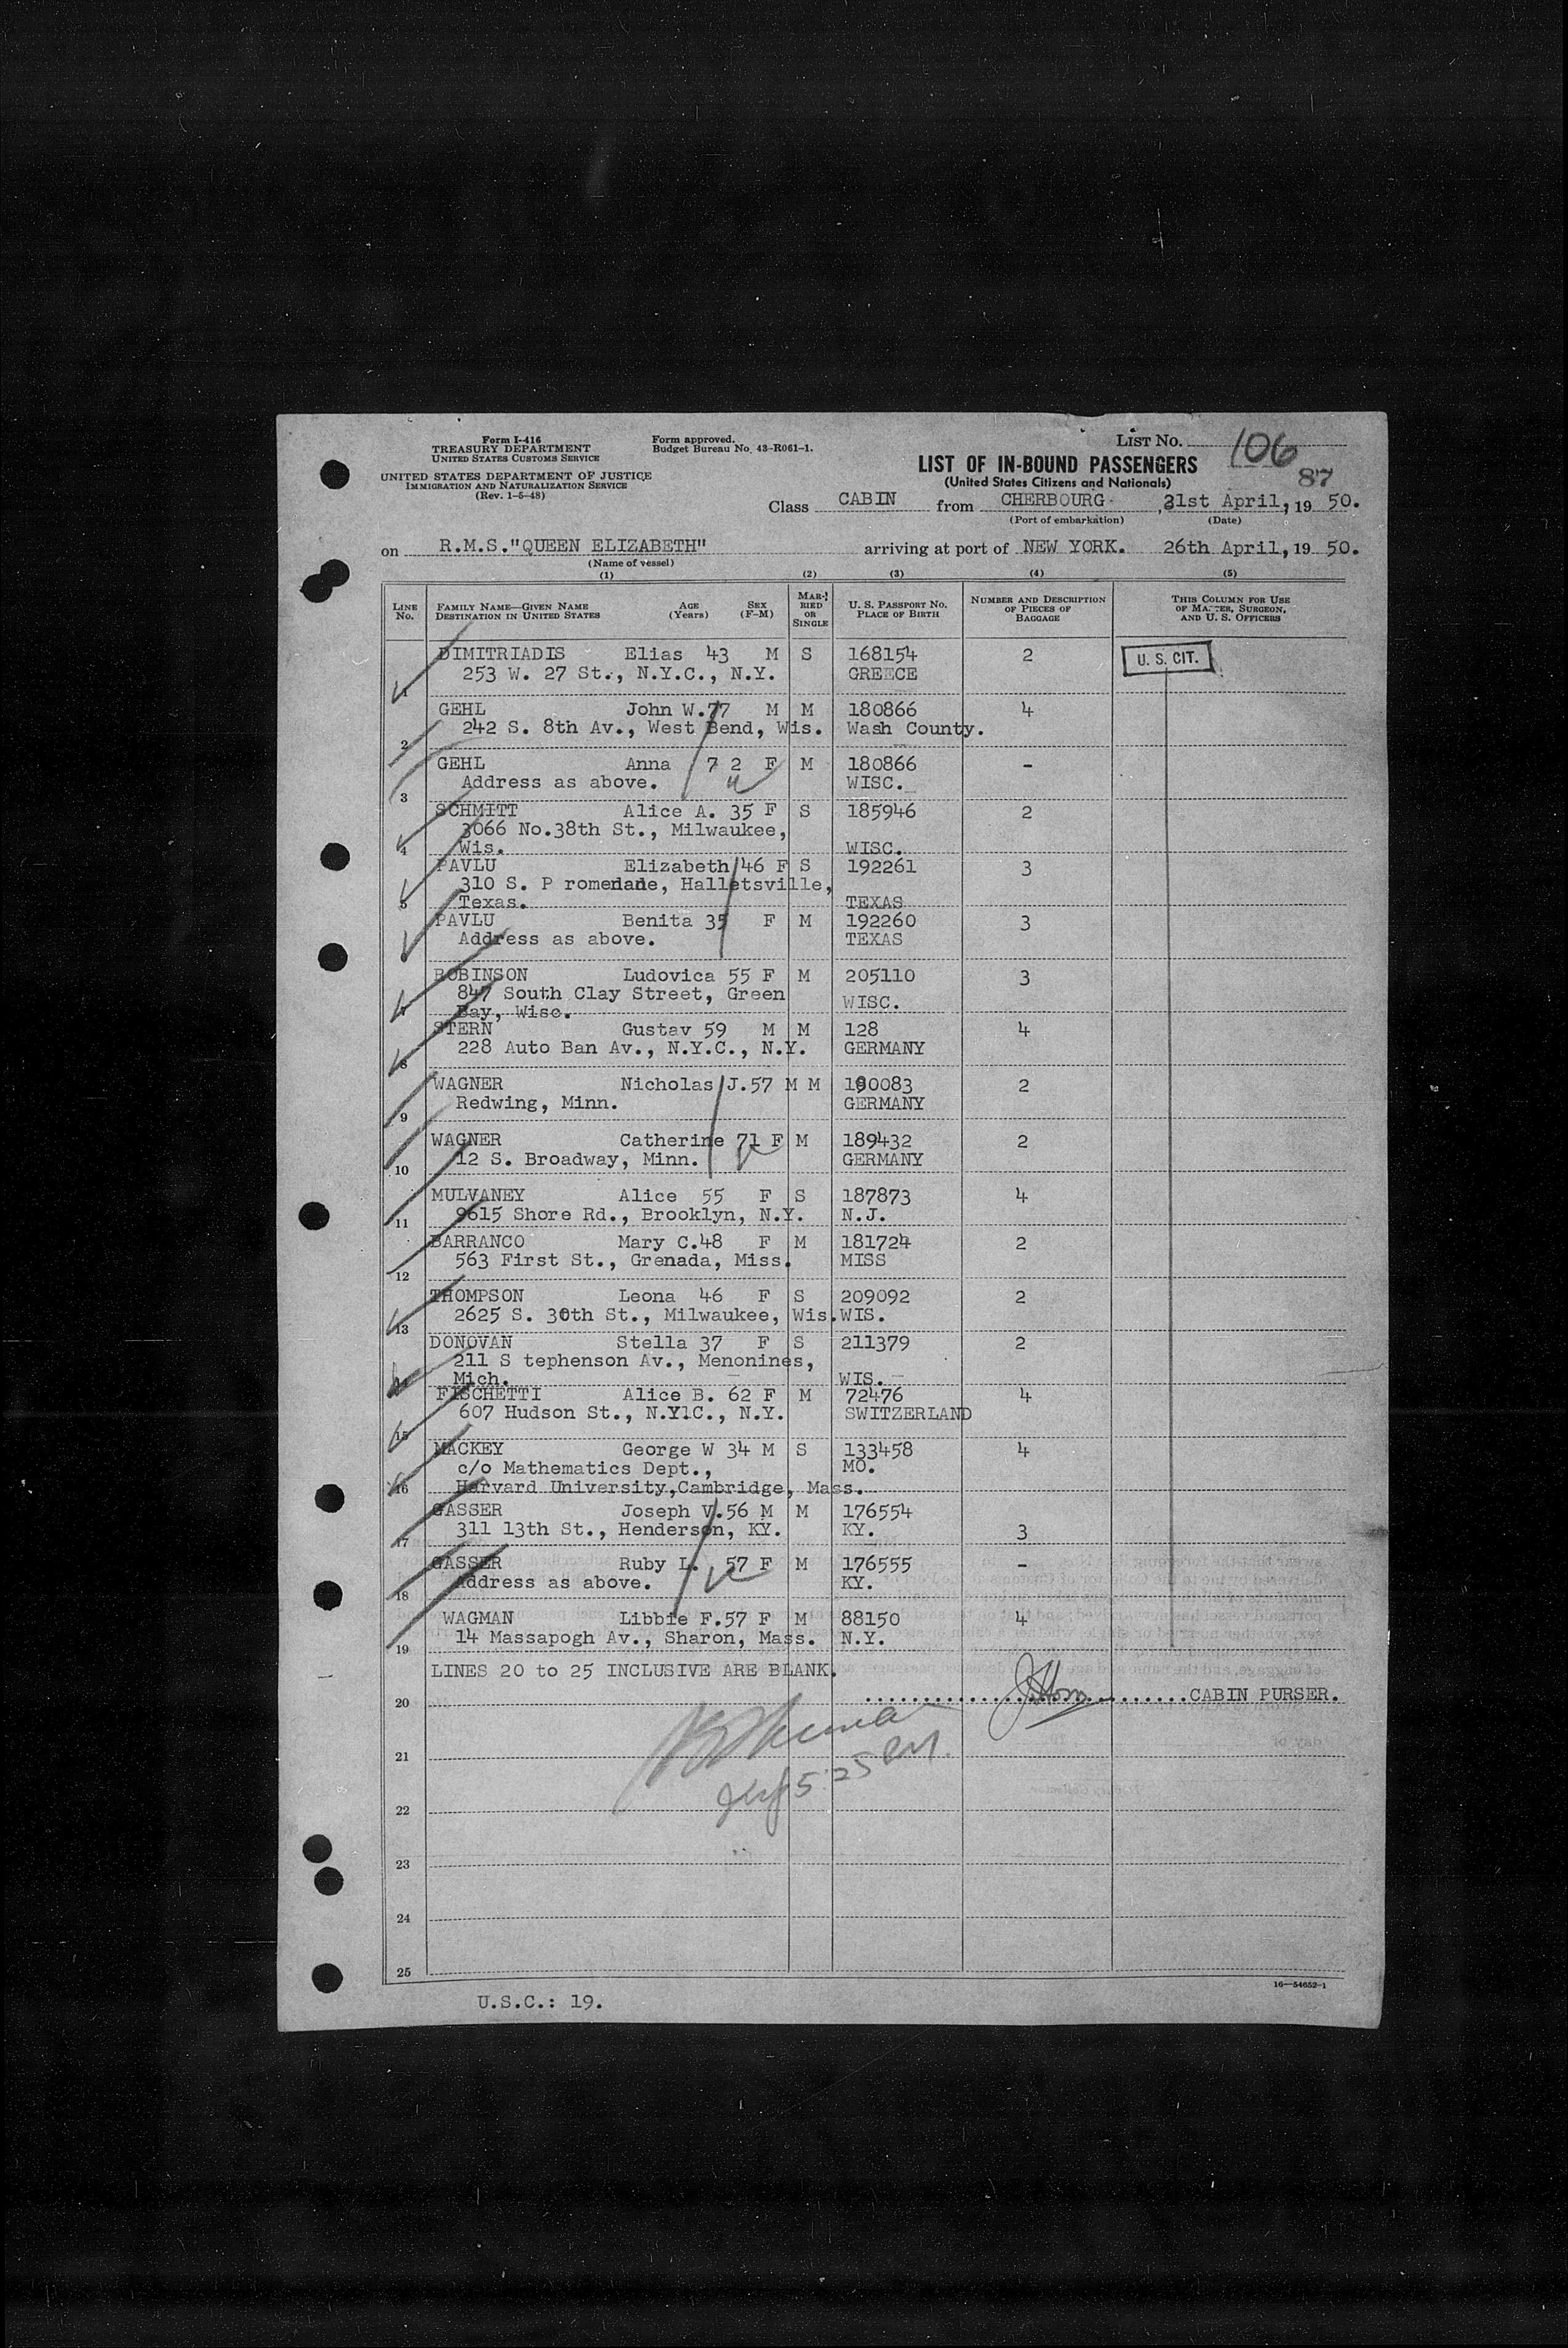 Form I-416
TREASURY DEPARTMENT
UNITED STATES CUSTOMS SERVICE
UNITED STATES DEPARTMENT OF JUSTICE
IMMIGRATION AND NATURALIZATION SERVICE
(Rev. 1-5-48)
Form approved.
Budget Bureau No. 43-R061-1.
LIST No. 106
87
LIST OF IN-BOUND PASSENGERS
(United States Citizens and Nationals)
Class CABIN from CHERBOURG, 21st April, 19 50.
(Port of embarkation) (Date)
on R.M.S."QUEEN ELIZABETH" arriving at port of NEW YORK. 26th April, 19 50.
(Name of vessel)
(1) (2) (3) (4) (5)
LINE No. FAMILY NAME—GIVEN NAME DESTINATION IN UNITED STATES AGE (Years) SEX (F-M) MARRIED OR SINGLE U. S. PASSPORT No. PLACE OF BIRTH NUMBER AND DESCRIPTION OF PIECES OF BAGGAGE THIS COLUMN FOR USE OF MASTER, SURGEON, AND U. S. OFFICERS
DIMITRIADIS Elias 43 M S 168154 2 U. S. CIT.
1 253 W. 27 St., N.Y.C., N.Y. GREECE
GEHL John W. 77 M M 180866 4
2 242 S. 8th Av., West Bend, Wis. Wash County.
GEHL Anna 7 2 F M 180866 -
3 Address as above. WISC.
SCHMITT Alice A. 35 F S 185946 2
3066 No.38th St., Milwaukee,
4 Wis. WISC.
PAVLU Elizabeth 46 F S 192261 3
310 S. P romenade, Halletsville,
5 Texas. TEXAS
PAVLU Benita 35 F M 192260 3
Address as above. TEXAS
ROBINSON Ludovica 55 F M 205110 3
847 South Clay Street, Green WISC.
7 Bay, Wisc.
STERN Gustav 59 M M 128 4
8 228 Auto Ban Av., N.Y.C., N.Y. GERMANY
WAGNER Nicholas J.57 M M 190083 2
9 Redwing, Minn. GERMANY
WAGNER Catherine 71 F M 189432 2
10 12 S. Broadway, Minn. GERMANY
MULVANEY Alice 55 F S 187873 4
11 9615 Shore Rd., Brooklyn, N.Y. N.J.
BARRANCO Mary C.48 F M 181724 2
12 563 First St., Grenada, Miss. MISS
THOMPSON Leona 46 F S 209092 2
13 2625 S. 30th St., Milwaukee, Wis. WIS.
DONOVAN Stella 37 F S 211379 2
211 S tephenson Av., Menonines,
14 Mich. WIS.
FISCHETTI Alice B. 62 F M 72476 4
15 607 Hudson St., N.YlC., N.Y. SWITZERLAND
MACKEY George W 34 M S 133458 4
c/o Mathematics Dept., MO.
16 Harvard University,Cambridge, Mass.
GASSER Joseph V.56 M M 176554
17 311 13th St., Henderson, KY. KY. 3
GASSER Ruby L. 57 F M 176555 -
18 Address as above. KY.
WAGMAN Libbie F.57 F M 88150 4
19 14 Massapogh Av., Sharon, Mass. N.Y.
LINES 20 to 25 INCLUSIVE ARE BLANK.
20 CABIN PURSER.
21
22
23
24
25
16—54652-1
U.S.C.: 19.